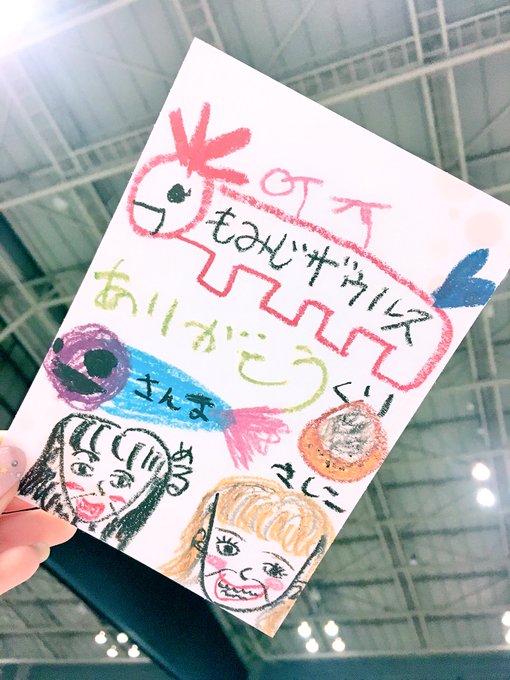 もみじザウルス
ありがとう
さんま
くり
さしこ
める